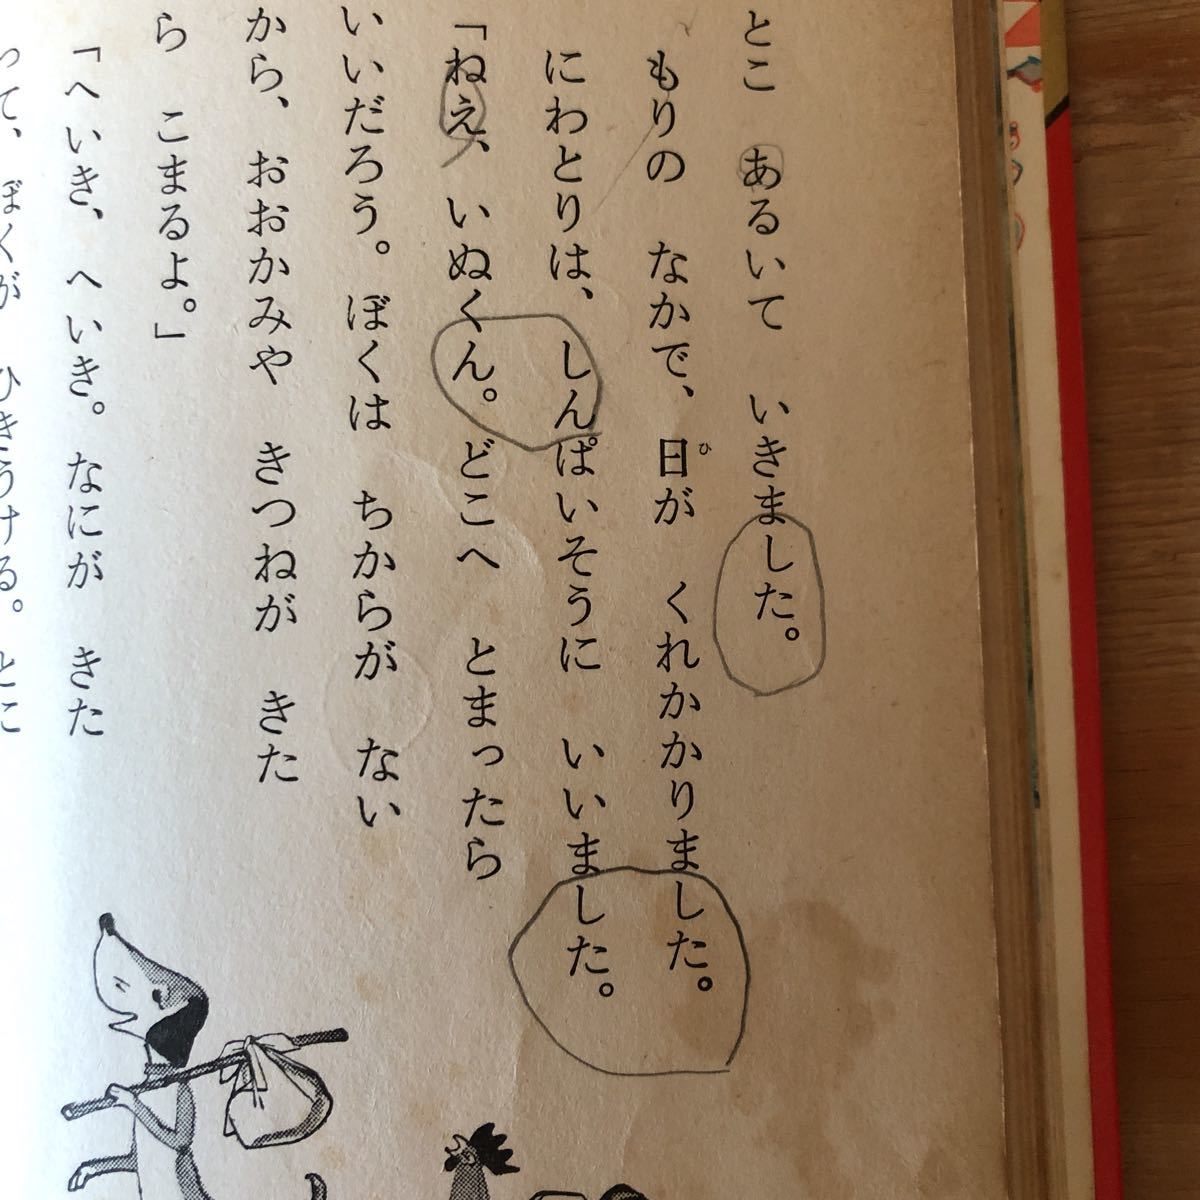 とこ　あるいて　いきました。
もりの　なかで、日が　くれかかりました。
ひ
にわとりは、しんぱいそうに　いいました。
「ねえ、いぬくん。どこへ　とまったら
いいだろう。ぼくは　ちからが　ない
から、おおかみや　きつねが　きた
ら　こまるよ。」
「へいき、へいき。なにが　きた
って、ぼくが　ひきうける。とこ